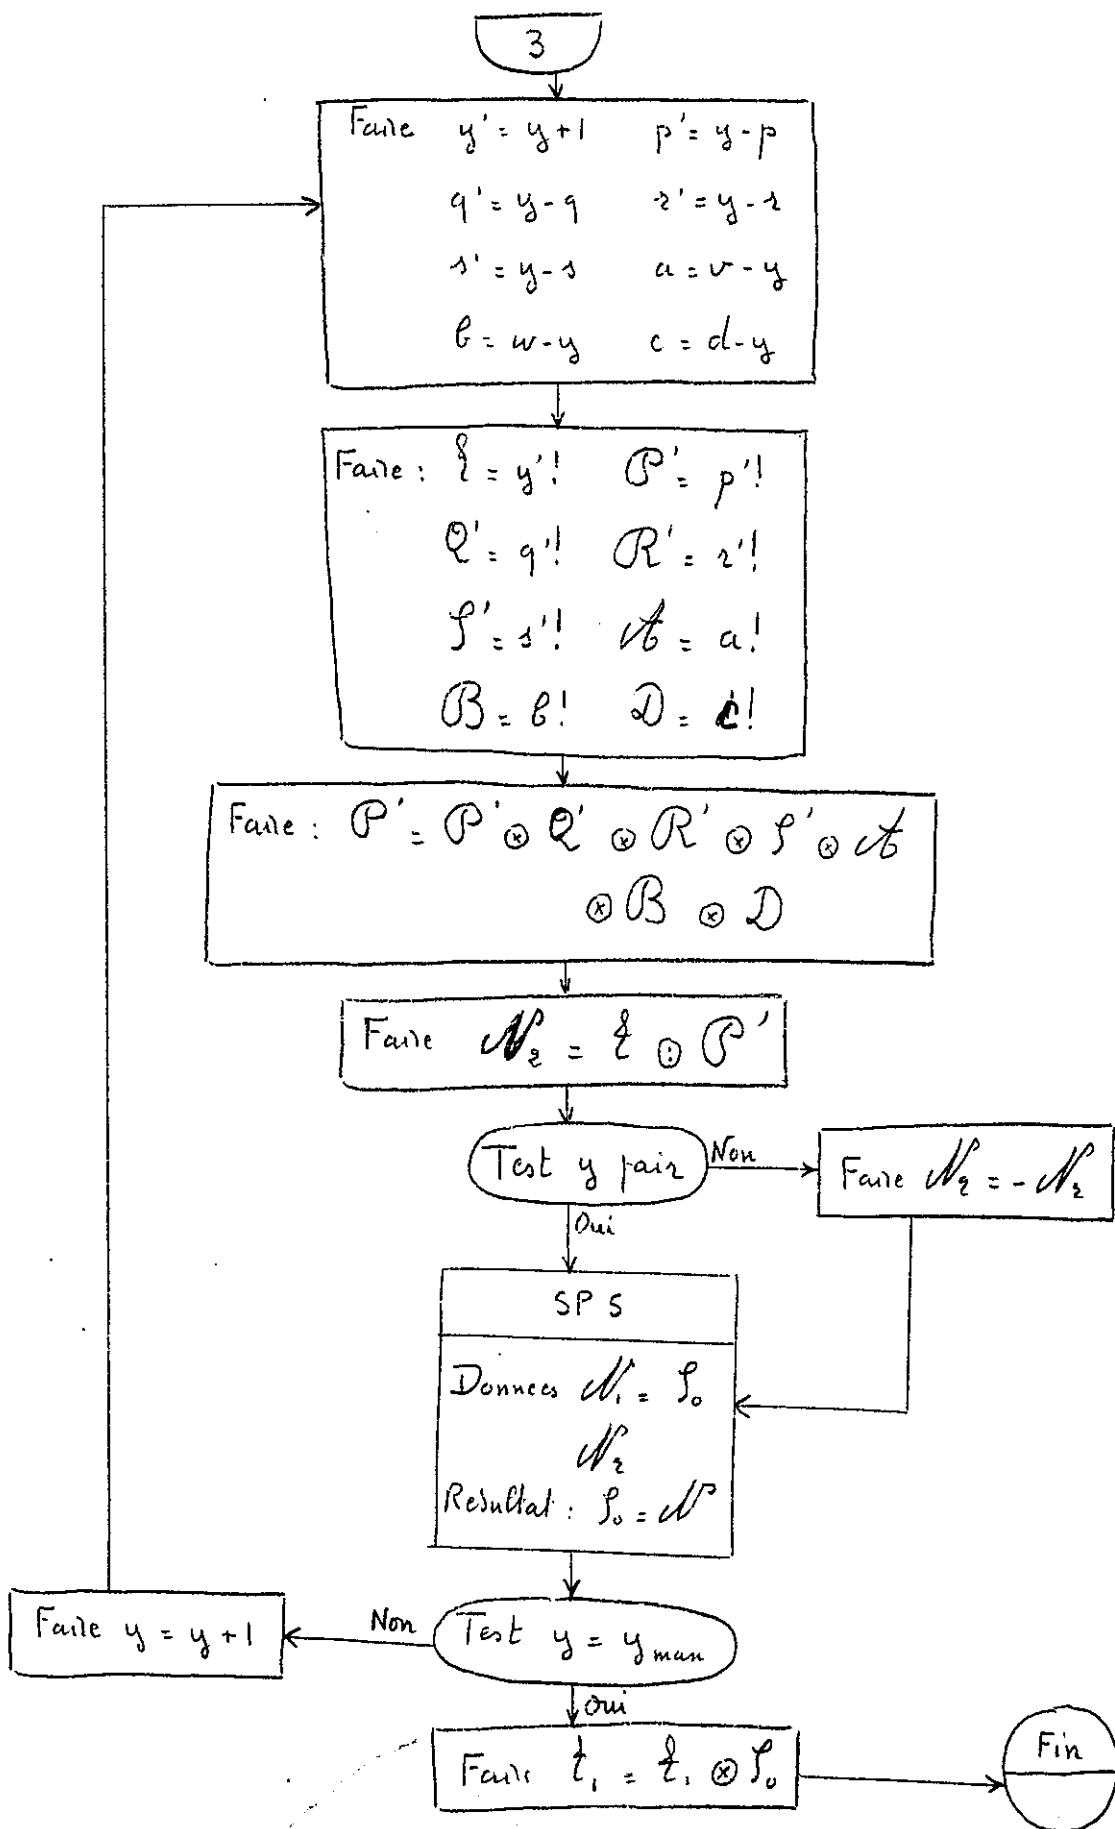 3
Faire y' = y+1 p' = y-p
q' = y-q r' = y-r
s' = y-s a = v-y
b = w-y c = d-y
Faire : ξ = y'! P' = p'!
Q' = q'! R' = r'!
S' = s'! A = a!
B = b! D = c!
Faire : P' = P' ⊗ Q' ⊗ R' ⊗ S' ⊗ A
⊗ B ⊗ D
Faire N₂ = ξ ⊙ P'
Test y pair
Non
Faire N₂ = - N₂
Oui
SP S
Données N₁ = S₀
N₂
Résultat : S₀ = N
Test y = y max
Non
Faire y = y+1
Oui
Faire ξ₁ = ξ₁ ⊗ S₀
Fin